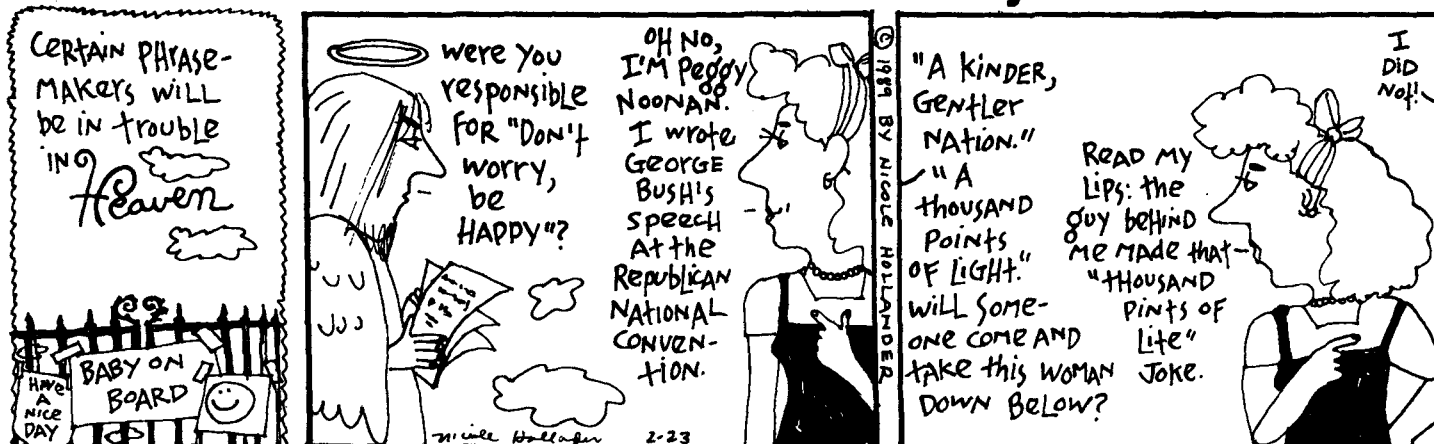 CERTAIN PHRASE-
MAKERS WILL
be IN trouble
IN
Heaven
HAVE
A
NICE
DAY
BABY ON
BOARD
were you
responsible
FOR "DON'T
worry,
be
HAPPY"?
OH NO,
I'M Peggy
NOONAN.
I wrote
GEORGE
BUSH'S
SPEECH
At the
Republican
NATIONAL
CONVEN-
tion.
Nicole Hollander 2-23
© 1989 BY NICOLE HOLLANDER
"A KINDER,
GENTLER
NATION."
"A
thousAND
Points
OF LIGHT."
WILL SOME-
ONE COME AND
tAKE this WOMAN
DOWN BELOW?
READ MY
Lips: the
guy behIND
ME MADE that—
"tHOUSAND
PINTS OF
Lite"
JOKE.
I
DID
Not!